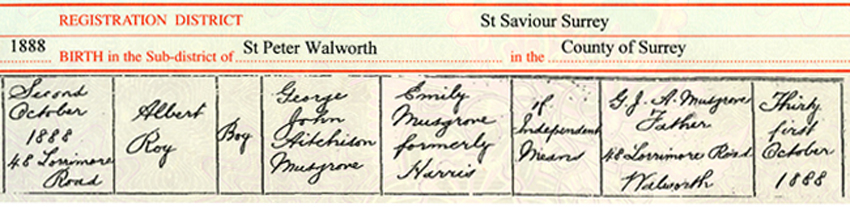 REGISTRATION DISTRICT St Saviour Surrey
1888 BIRTH in the Sub-district of St Peter Walworth in the County of Surrey
Second
October
1888
48 Lorrimore
Road
Albert
Roy
Boy
George
John
Aitchison
Musgrove
Emily
Musgrove
formerly
Harris
of
Independent
Means
G. J. A. Musgrove
Father
48 Lorrimore Road
Walworth
Thirty
first
October
1888